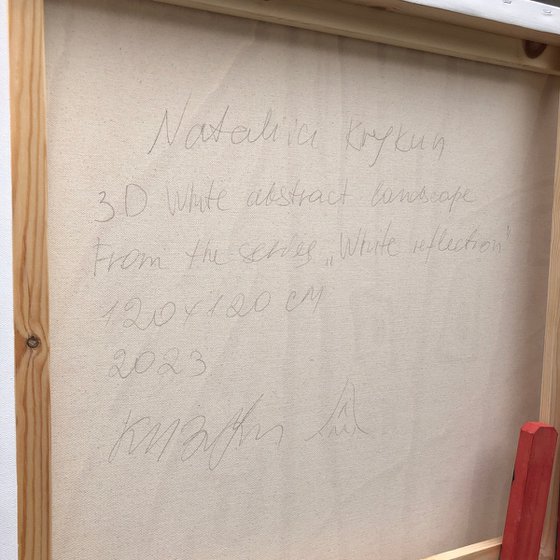 Nataliia Krykun
3D White abstract landscape
From the series „White reflection"
120x120 cm
2023